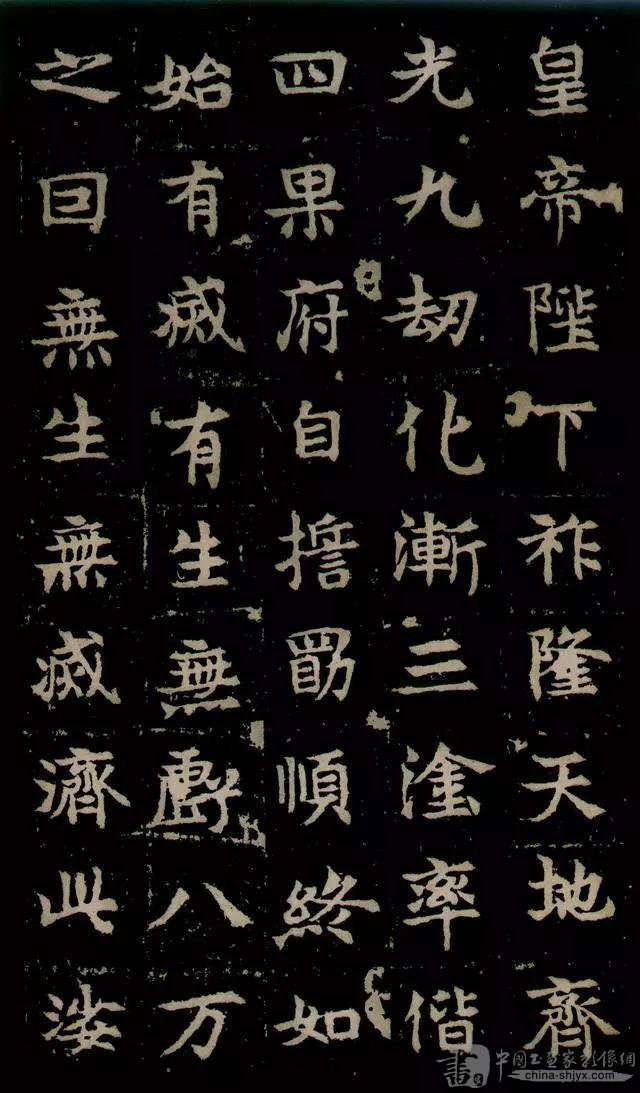 皇帝陛下祚隆天地齊
光九劫化漸三塗率偕
四果府自擔勗順終如
始有滅有生無虧八万
之曰無生無滅濟此婆
中國书画家影像網
china-shjyx.com